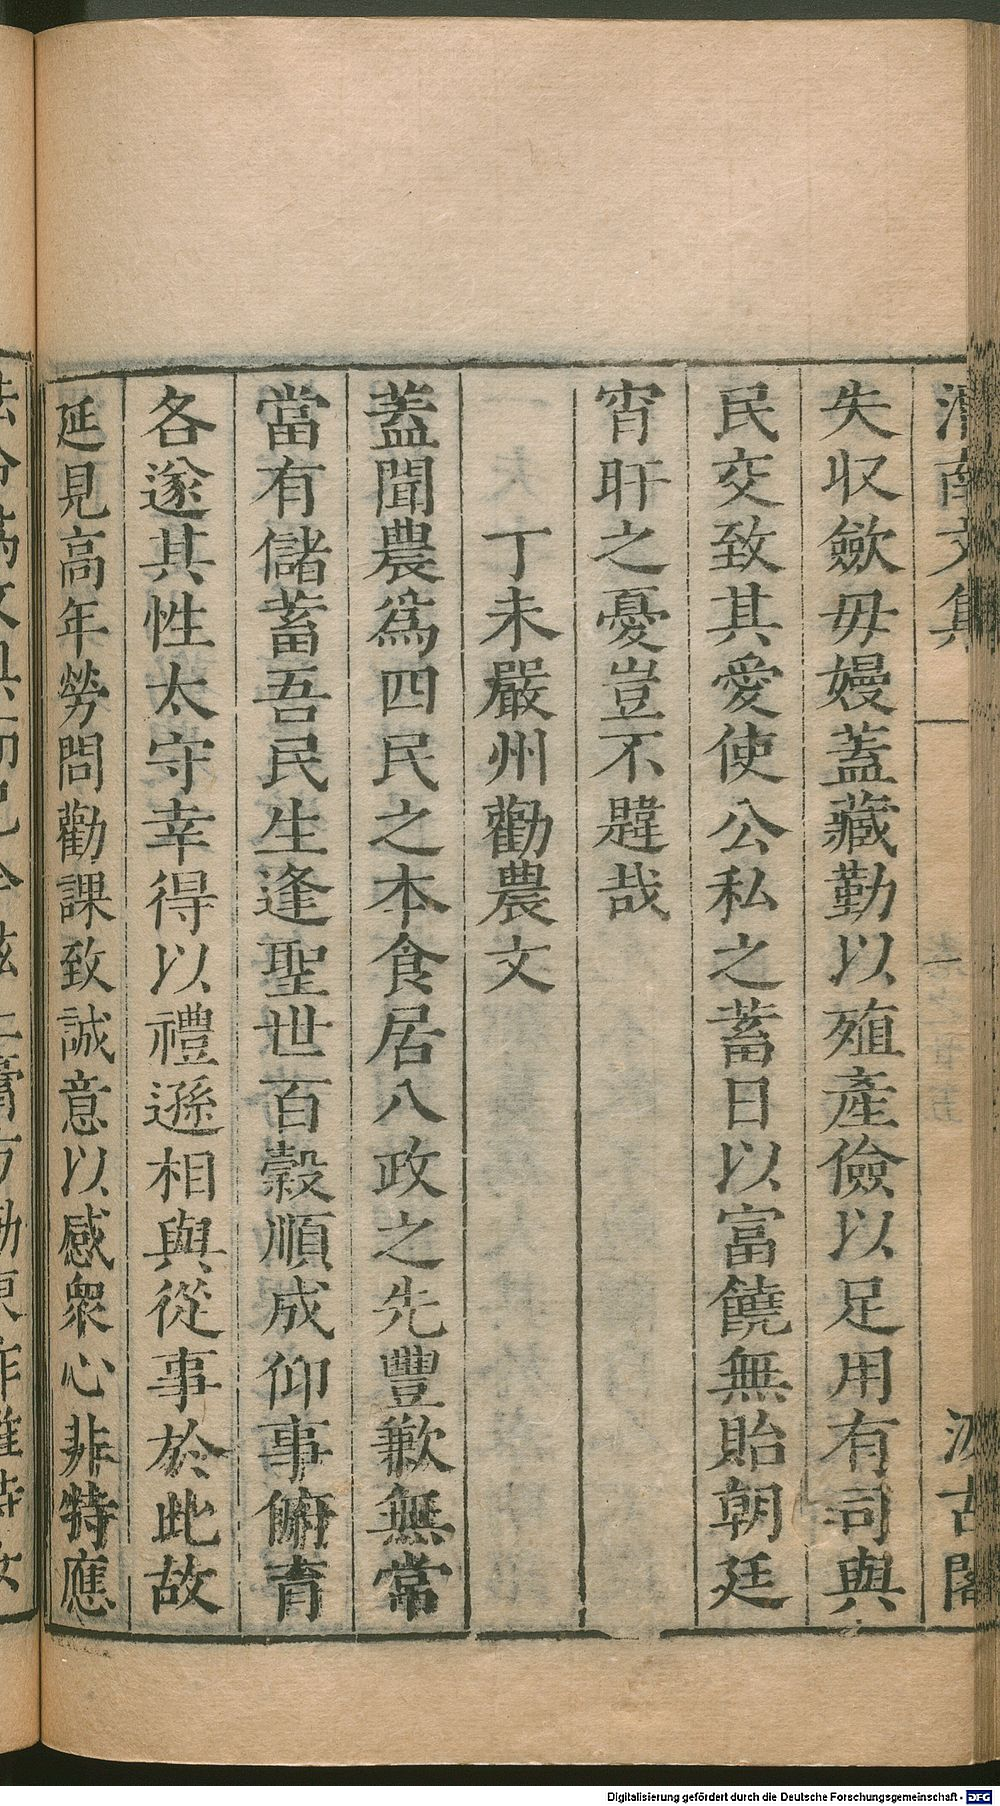 渭南文集 汲古閣
失収歛毋嫚蓋藏勤以殖產儉以足用有司與
民交致其愛使公私之蓄日以富饒無貽朝廷
宵旰之憂豈不韙哉
丁未嚴州勸農文
蓋聞農爲四民之本食居八政之先豐歉無常
當有儲蓄吾民生逢聖世百穀順成仰事俯育
各遂其性太守幸得以禮遜相與從事於此故
延見高年勞問勸課致誠意以感衆心非特應
Digitalisierung gefördert durch die Deutsche Forschungsgemeinschaft - DFG